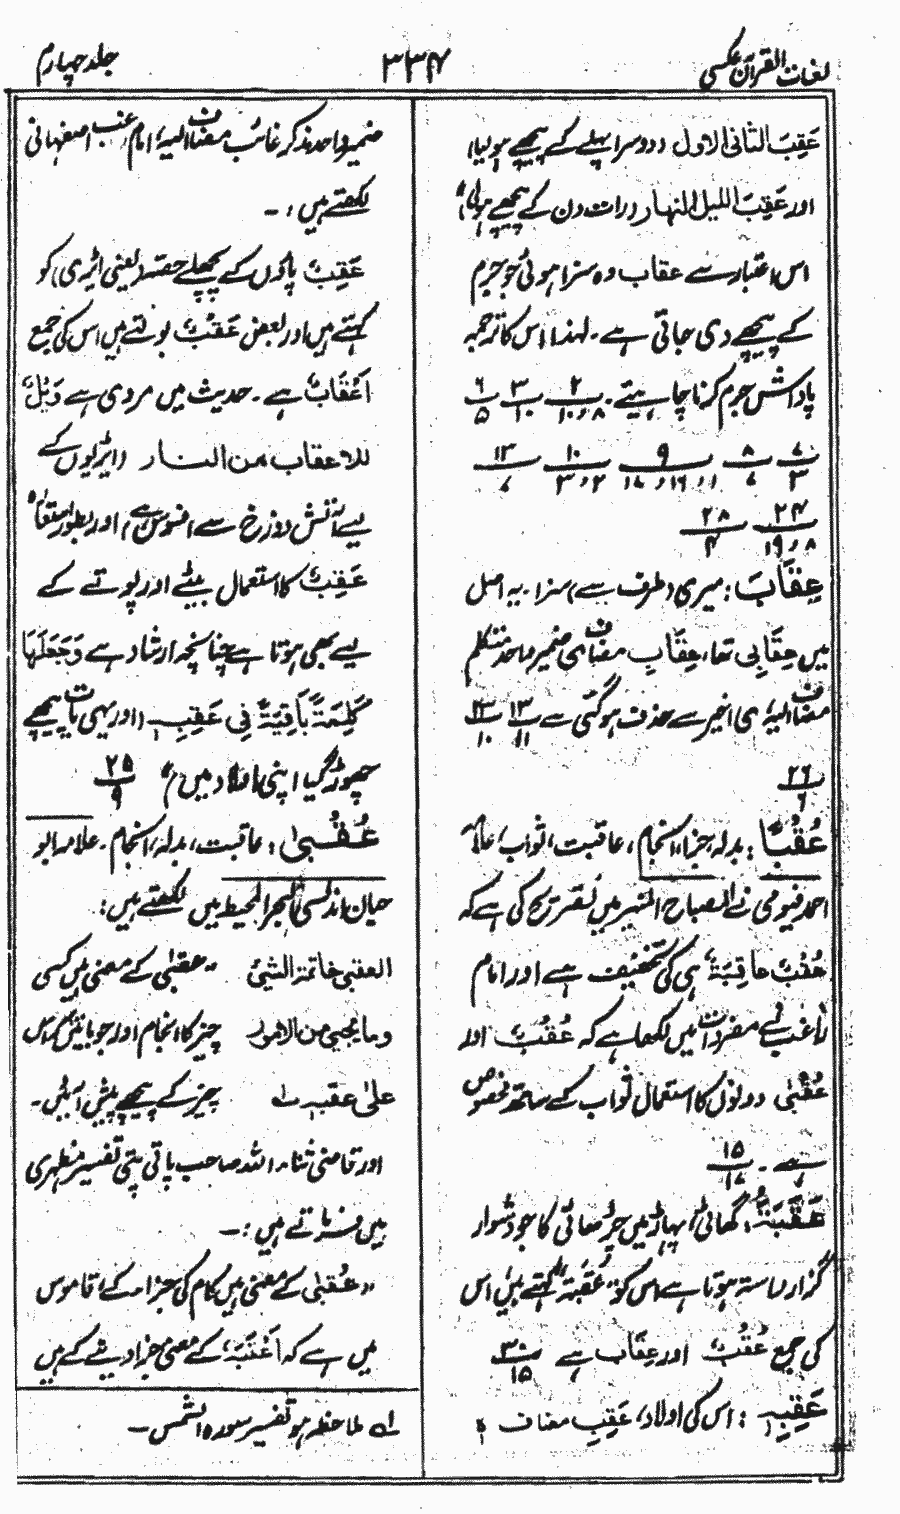 لغات القرآن عکسی
۳۳۴
جلد چہارم
عَقِبَ الثانی الاول (دوسرا پہلے کے پیچھے ہولیا)
اور عَقِبَ اللیل النہار (رات دن کے پیچھے ہولی)"
اس اعتبار سے عقاب وہ سزا ہوئی جو جرم
کے پیچھے دی جاتی ہے۔ لہذا اس کا ترجمہ
پاداش جرم کرنا چاہیئے۔ ۲/۸،۱۰ ۳/۱۰ ۶/۵
۷/۳ ۸/۷ ۹/۱،۱۶،۱۷ ۱۰/۲،۳ ۱۳/۷
۲۴/۸،۱۹ ۲۸/۴
عِقَابَ: میری (طرف سے) سزا۔ یہ اصل
میں عِقَابِی تھا، عِقَابِ مضاف ی ضمیر واحد متکلم
مضاف الیہ، ی اخیر سے حذف ہوگئی ہے ۱۳/۱۱ ۲۳/۱۰
۲۶/۶
عُقْبًا: بدلہ، جزا، انجام، عاقبت، ثواب، علامہ
احمد فیومی نے المصباح المنیر میں تصریح کی ہے کہ
عُقْبٌ عاقِبَةٌ ہی کی تخفیف ہے اور امام
راغب نے مفردات میں لکھا ہے کہ عُقُبٌ اور
عُقْبٰی دونوں کا استعمال ثواب کے ساتھ مخصوص
ہے۔ ۱۵/۱۷
عَقَبَةٌ: گھاٹی، پہاڑ میں چڑھائی کا جو دشوار
گزار راستہ ہوتا ہے اس کو "عَقَبَة" کہتے ہیں، اس
کی جمع عُقُبٌ اور عِقَاب ہے ۳۰/۱۵
عَقِبِهٖ: اس کی اولاد، عَقِبِ مضاف ہٖ
ضمیر واحد مذکر غائب مضاف الیہ، امام راغب اصفہانی
لکھتے ہیں:۔
عَقِبٌ پاؤں کے پچھلے حصّہ (یعنی ایڑی) کو
کہتے ہیں اور بعض عَقْبٌ بولتے ہیں اس کی جمع
اَعْقَابٌ ہے۔ حدیث میں مروی ہے وَیْلٌ
للاعقاب من النار (ایڑیوں کے
لیے آتش دوزخ سے افسوس ہے) اور بطور استعارہ
عَقِبٌ کا استعمال بیٹے اور پوتے کے
لیے بھی ہوتا ہے چنانچہ ارشاد ہے وَجَعَلَهَا
كَلِمَةً بَاقِيَةً فِي عَقِبِهٖ (اور یہی بات پیچھے
چھوڑ گیا اپنی اولاد میں)" ۲۵/۹
عُقْبىٰ: عاقبت، بدلہ، انجام۔ علامہ ابو
حیان اندلسی البحر المحیط میں لکھتے ہیں:
العقبی خاتمۃ الشیئ "عقبٰی کے معنی ہیں کسی
وما یجیئ من الامور چیز کا انجام اور جو باتیں کہ اس
علیٰ عقبہ لہ چیز کے پیچھے پیش آئیں۔
اور قاضی ثناء اللہ صاحب پانی پتی تفسیر مظہری
میں فرماتے ہیں:۔
"عُقبیٰ کے معنی ہیں کام کی جزا کے، قاموس
میں ہے کہ اَعْقَبَهٗ کے معنی جزا دینے کے ہیں
لہ ملاحظہ ہو تفسیر سورہ الشمس۔